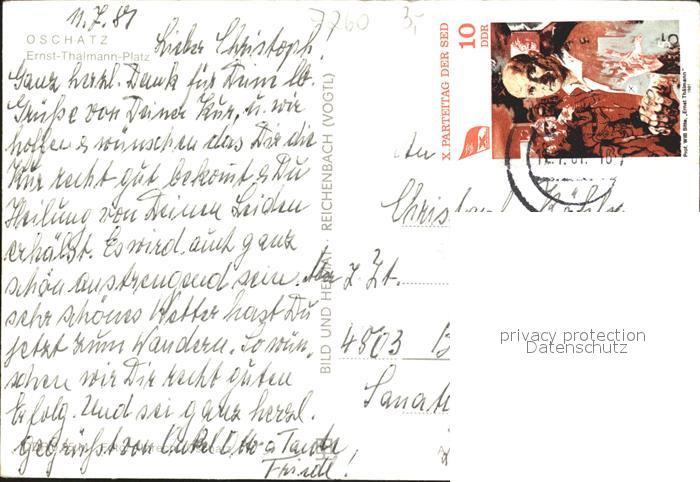 11.7.81
7260
3,-
OSCHATZ
Ernst-Thälmann-Platz
Lieber Christoph!
Ganz herzl. Dank für Deine lb.
Grüße von Deiner Kur, u. wir
hoffen & wünschen das Dir die
Kur recht gut bekomt & Du
Heilung von Deinen Leiden
erhälst. Es wird auch ganz
schön anstrengend sein. Aber
sehr schönes Wetter hast Du
jetzt zum Wandern. So wün-
schen wir Dir recht guten
Erfolg. Und sei ganz herzl.
gegrüßt von Onkel Otto & Tante
Friedl!
BILD UND HEIMAT REICHENBACH (VOGTL)
X. PARTEITAG DER SED
10
DDR
Prof. Willi Sitte, „Ernst Thälmann"
1981
An
z. Zt.
4803
privacy protection
Datenschutz